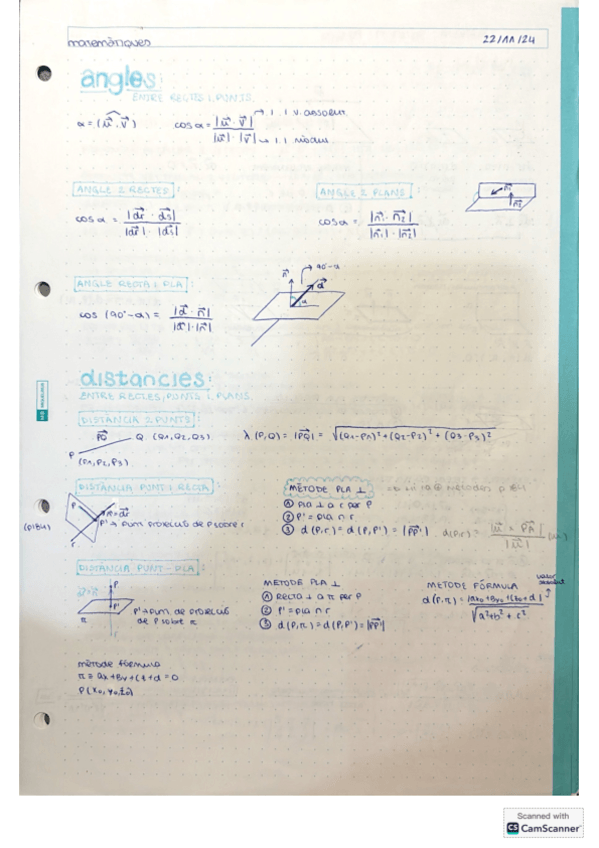 matemàtiques 22/11/24
angles:
ENTRE RECTES I PUNTS.
α = (u⃗, v⃗) cos α = |u⃗ · v⃗| / |u⃗| · |v⃗|
ANGLE 2 RECTES:
cos α = |dr⃗ · ds⃗| / |dr⃗| · |ds⃗|
ANGLE 2 PLANS:
cos α = |n1⃗ · n2⃗| / |n1⃗| · |n2⃗|
n1⃗
n2⃗
ANGLE RECTA I PLA:
cos (90° - α) = |d⃗ · n⃗| / |d⃗| · |n⃗|
n⃗ 90° - α
d⃗
α
distàncies:
ENTRE RECTES, PUNTS I PLANS.
DISTÀNCIA 2 PUNTS:
PQ⃗ Q (Q1, Q2, Q3)
P (P1, P2, P3)
d (P, Q) = |PQ⃗| = √(Q1-P1)² + (Q2-P2)² + (Q3-P3)²
DISTÀNCIA PUNT I RECTA:
P n⃗ = dr⃗
P' → punt projecció de P sobre r
r
MÈTODE PLA ⊥
① Pla ⊥ a r per P
② P' = pla ∩ r
③ d (P, r) = d (P, P') = |PP⃗'|
d(P,r) = |u⃗ × PA⃗| / |u⃗|
DISTÀNCIA PUNT - PLA:
P
P' → punt de projecció
de P sobre π
π
METODE PLA ⊥
① Recta ⊥ a π per P
② P' = pla ∩ r
③ d (P, π) = d (P, P') = |PP⃗'|
METODE FÓRMULA valor absolut
d (P, π) = |ax0 + by0 + cz0 + d| / √a² + b² + c²
mètode fórmula
π = ax + by + cz + d = 0
P (x0, y0, z0)
Scanned with
CS CamScanner